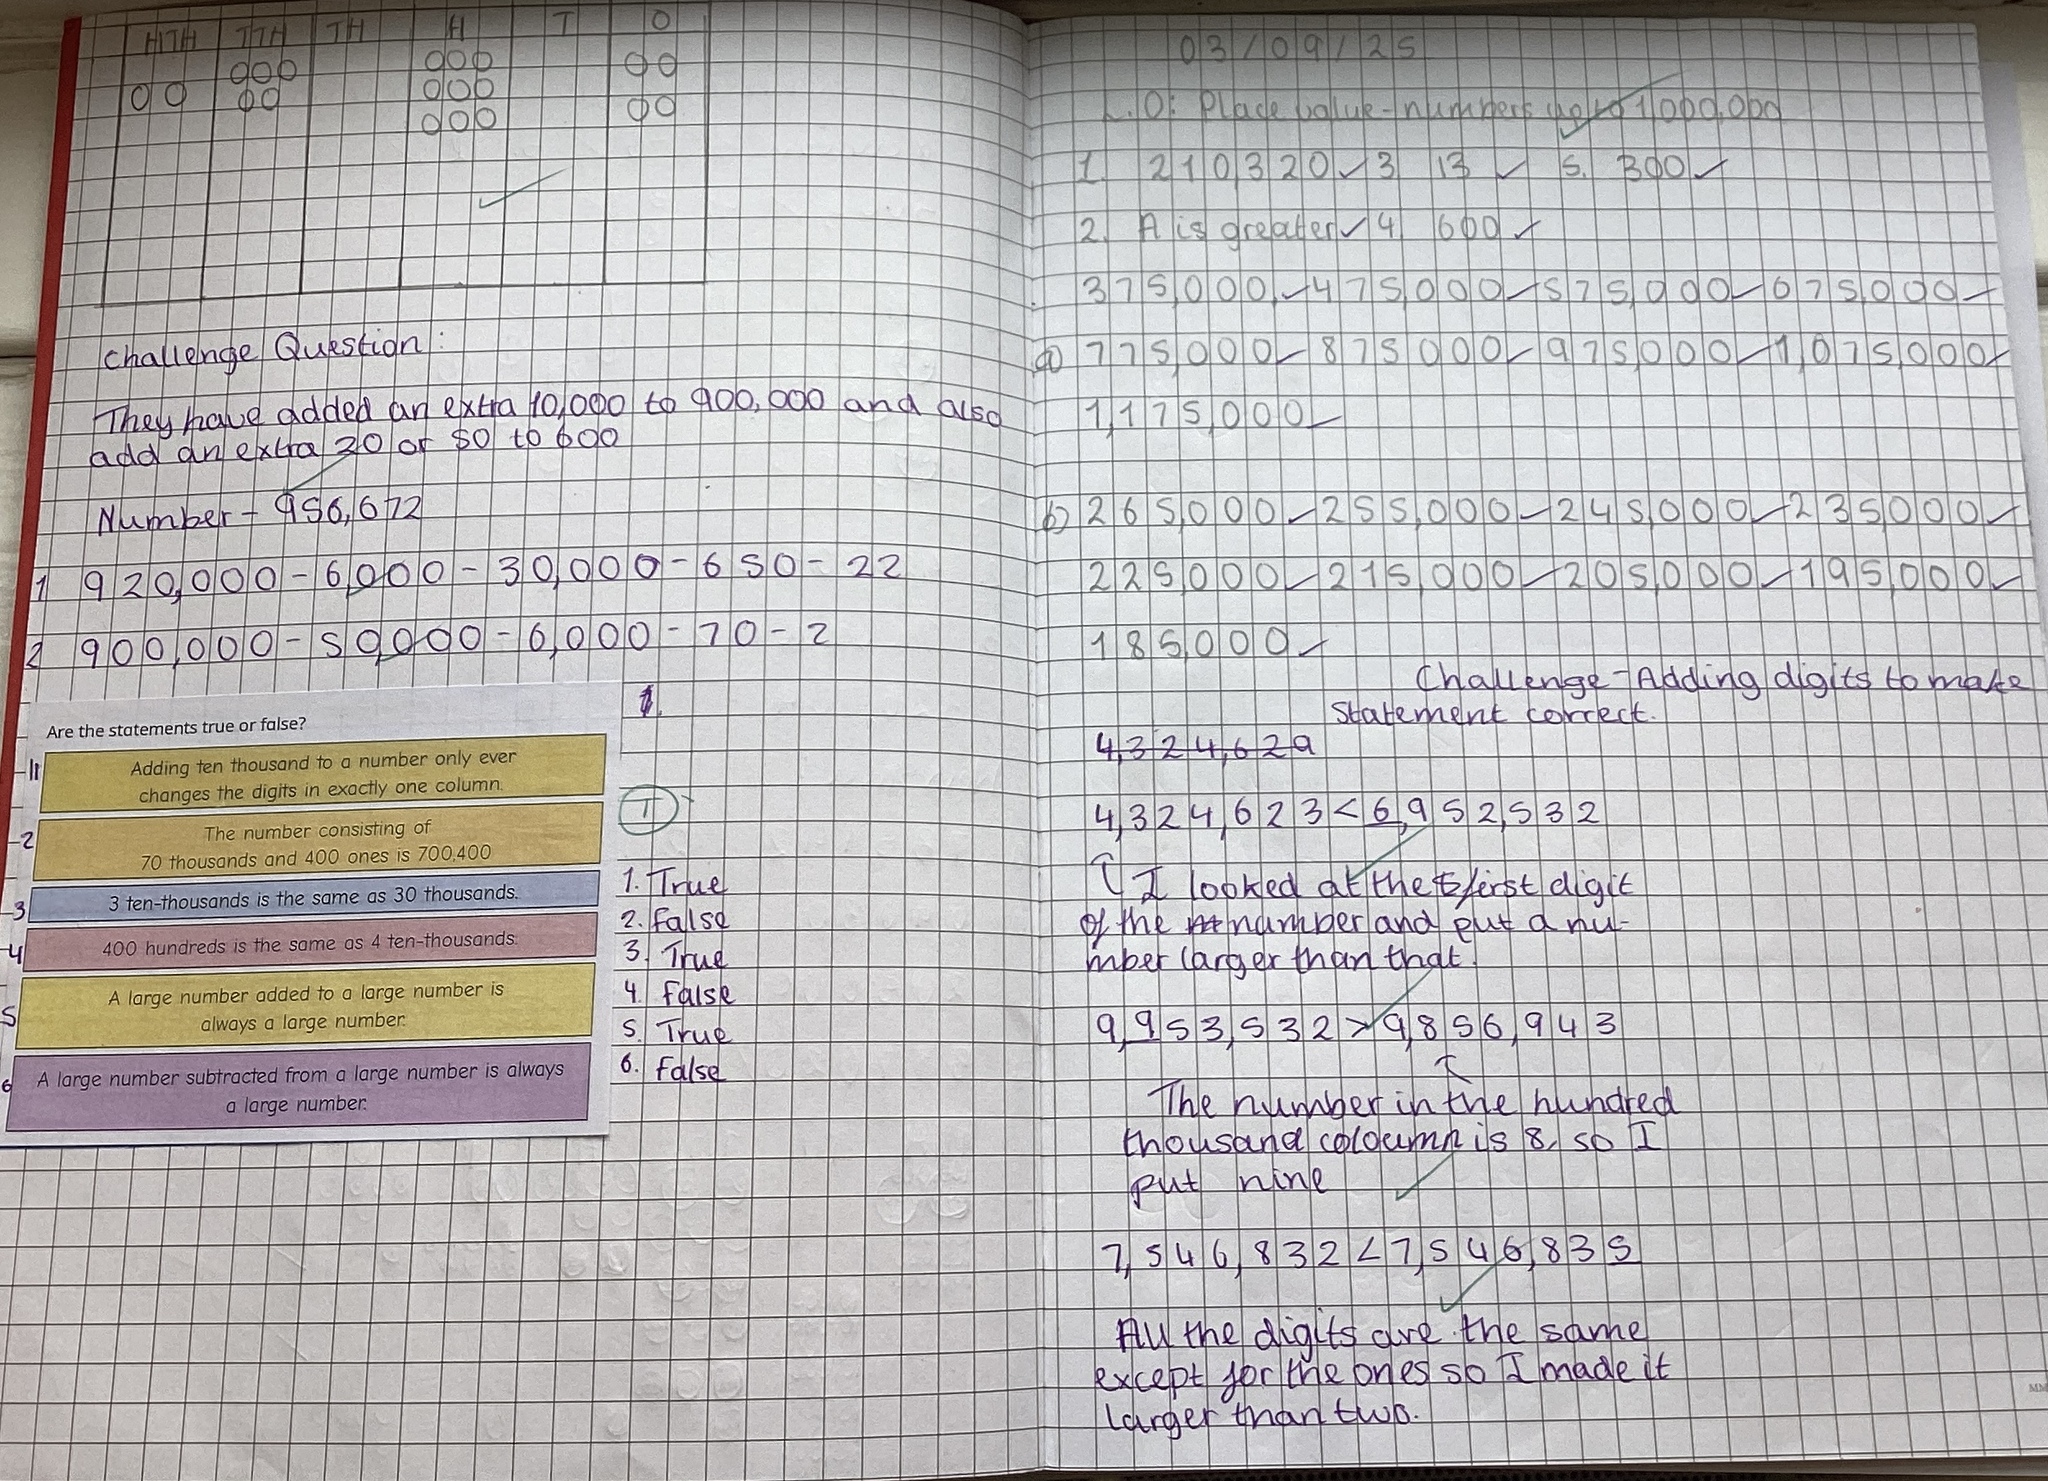 HTH TTH TH H T O
Challenge Question:
They have added an extra 10,000 to 900,000 and also
add an extra 20 or 50 to 600
Number - 956,672
1 920,000 - 6,000 - 30,000 - 650 - 22
2 900,000 - 50,000 - 6,000 - 70 - 2
Are the statements true or false?
1 Adding ten thousand to a number only ever
changes the digits in exactly one column.
2 The number consisting of
70 thousands and 400 ones is 700,400
3 3 ten-thousands is the same as 30 thousands.
4 400 hundreds is the same as 4 ten-thousands.
5 A large number added to a large number is
always a large number.
6 A large number subtracted from a large number is always
a large number.
T
1. True
2. False
3. True
4. False
5. True
6. False
03/09/25
L.O: Place value - numbers up to 1,000,000
1. 210,320 3 13 5. 300
2. A is greater 4 600
375,000 475,000 575,000 675,000
a) 775,000 875,000 975,000 1,075,000
1,175,000
b) 265,000 255,000 245,000 235,000
225,000 215,000 205,000 195,000
185,000
Challenge - Adding digits to make
statement correct.
4,324,629
4,324,623 < 6,952,532
I looked at the first digit
of the number and put a nu-
mber larger than that.
9,953,532 > 9,856,943
The number in the hundred
thousand coloumn is 8, so I
put nine
7,546,832 < 7,546,835
All the digits are the same
except for the ones so I made it
larger than two.